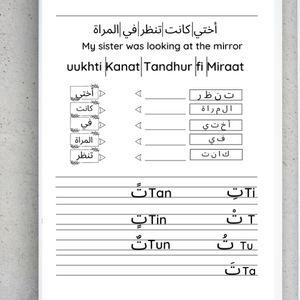 أختي|كانت|تنظر|في|المراة
My sister was looking at the mirror
uukhti Kanat Tandhur fi Miraat
أختي ت ن ظ ر
كانت ا ل م ر ا ة
في أ خ ت ي
المراة ف ي
تنظر ك ا ن ت
تً Tan تِ Ti
تٍ Tin تْ T
تٌ Tun تُ Tu
تَ Ta